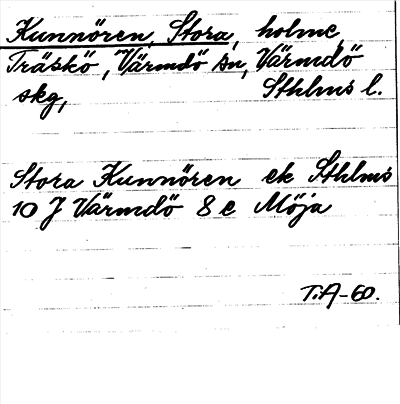 Kunnören, Stora, holme,
Träskö, Värmdö sn, Värmdö
skg, Sthlms l.
Stora Kunnören ek Sthlms
10 J Värmdö 8 e Möja
T.A-60.